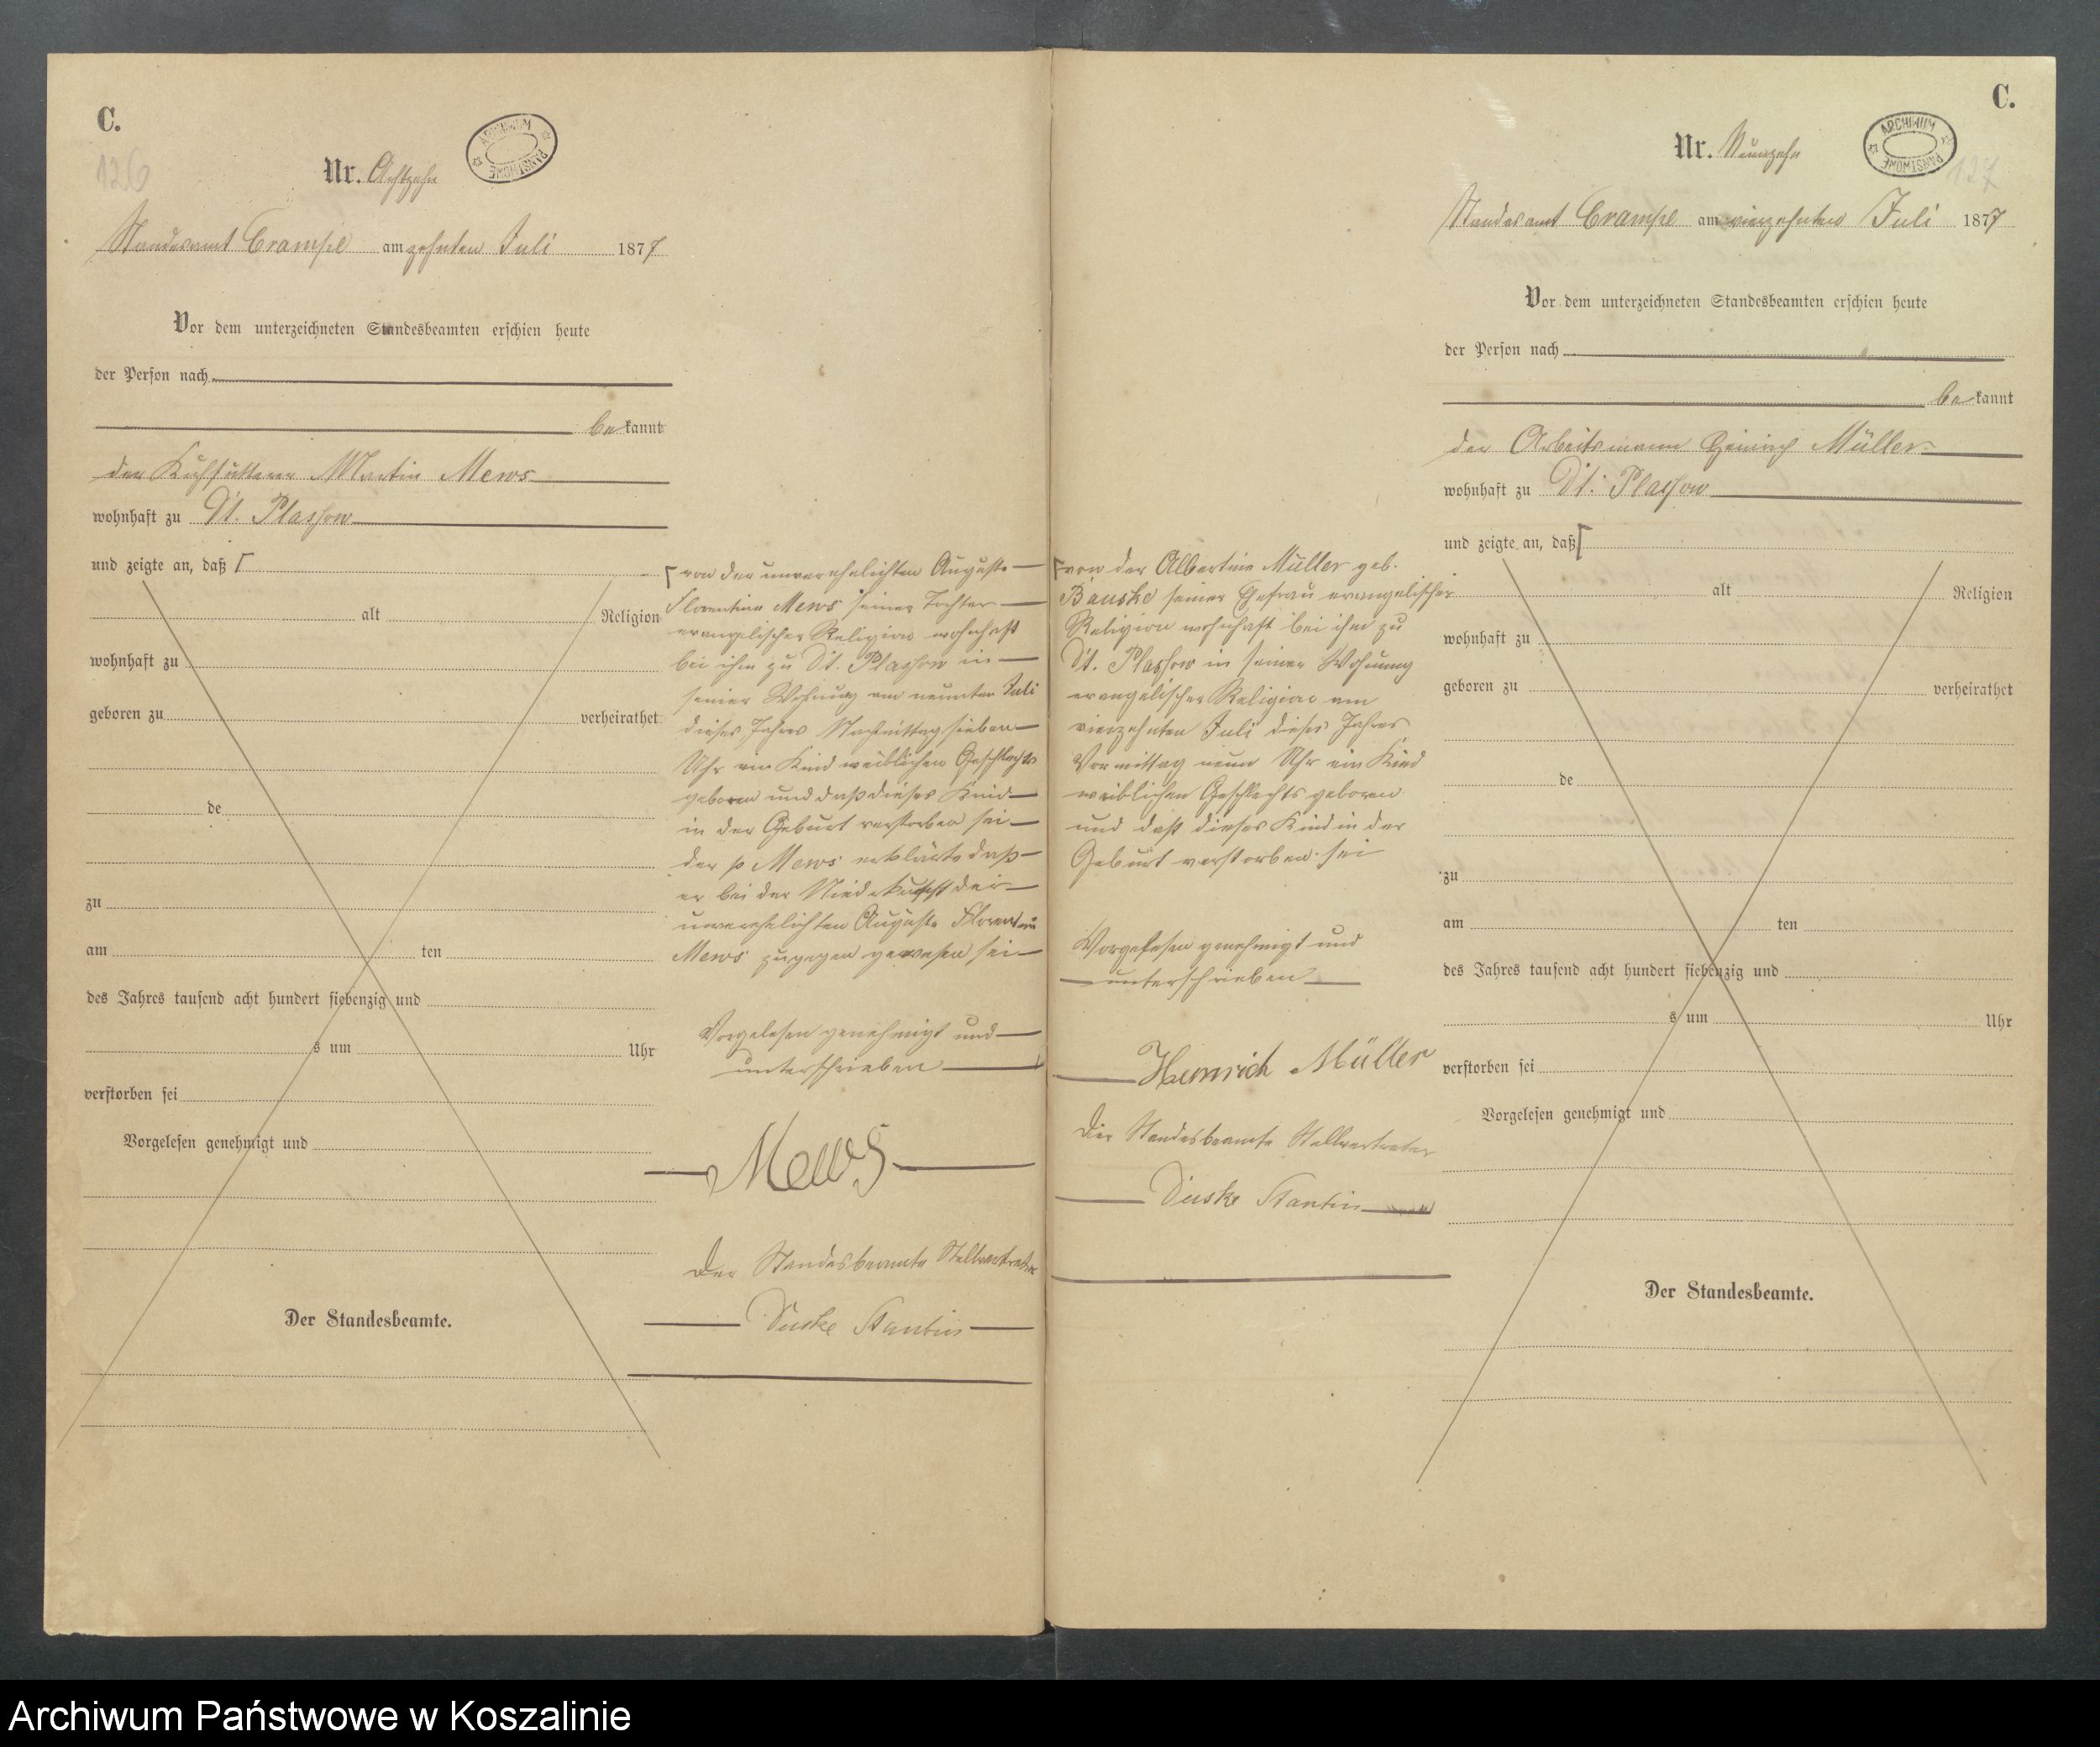 C.
126
Nr. Achtzehn
ARCHIWUM PAŃSTWOWE
Standesamt Crampe am zehnten Juli 1877
Vor dem unterzeichneten Standesbeamten erschien heute
der Person nach
be kannt
der Kuhfütterer Martin Mews
wohnhaft zu Dt. Plassow
und zeigte an, daß [
alt Religion
wohnhaft zu
geboren zu verheirathet
de
zu
am ten
des Jahres tausend acht hundert siebenzig und
s um Uhr
verstorben sei
Vorgelesen genehmigt und
Der Standesbeamte.
[von der unverehelichten Auguste
Florentine Mews seiner Tochter
evangelischer Religion wohnhaft
bei ihm zu Dt. Plassow in
seiner Wohnung am neunten Juli
dieses Jahres Nachmittag sieben
Uhr ein Kind weiblichen Geschlechts
geboren und daß dieses Kind
in der Geburt verstorben sei
der p Mews erklärte daß
er bei der Niederkunft der
unverehelichten Auguste Florentine
Mews zugegen gewesen sei
Vorgelesen genehmigt und
unterschrieben
Mews
Der Standesbeamte Stellvertreter
C.
127
Nr. Neunzehn
ARCHIWUM PAŃSTWOWE
Standesamt Crampe am vierzehnten Juli 1877
Vor dem unterzeichneten Standesbeamten erschien heute
der Person nach
be kannt
der Arbeitsmann Heinrich Müller
wohnhaft zu Dt. Plassow
und zeigte an, daß [
[von der Albertine Müller geb.
Bauske seiner Ehefrau evangelischer
Religion wohnhaft bei ihm zu
Dt. Plassow in seiner Wohnung
evangelischer Religion am
vierzehnten Juli dieses Jahres
Vormittag neun Uhr ein Kind
weiblichen Geschlechts geboren
und daß dieses Kind in der
Geburt verstorben sei
Vorgelesen genehmigt und
unterschrieben
Heinrich Müller
Der Standesbeamte Stellvertreter
alt Religion
wohnhaft zu
geboren zu verheirathet
de
zu
am ten
des Jahres tausend acht hundert siebenzig und
s um Uhr
verstorben sei
Vorgelesen genehmigt und
Der Standesbeamte.
Archiwum Państwowe w Koszalinie